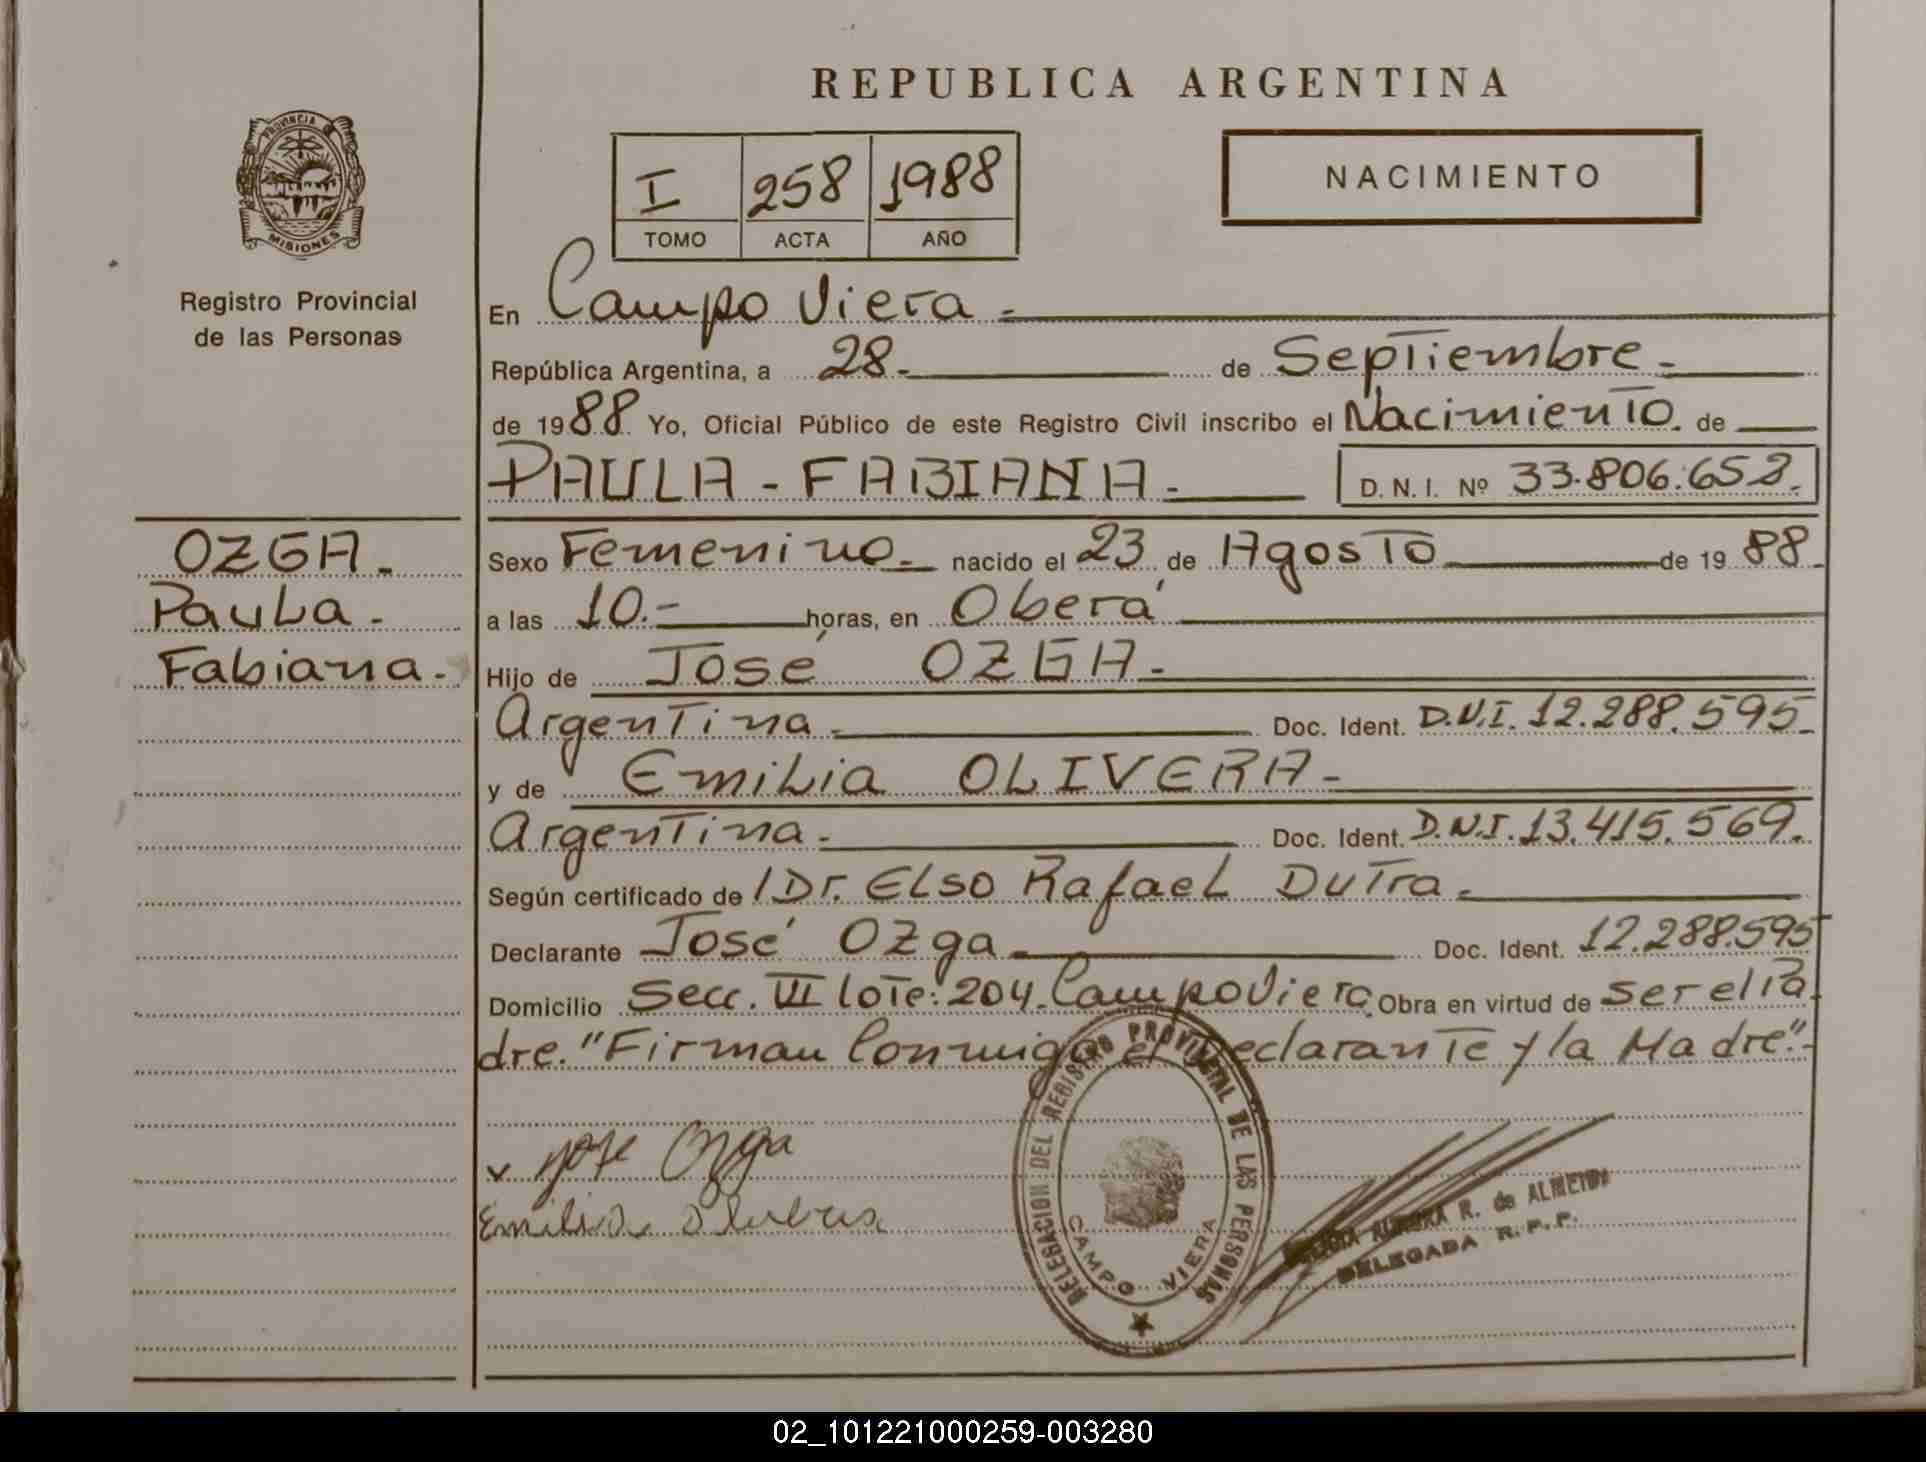 REPUBLICA ARGENTINA
PROVINCIA DE
MISIONES
Registro Provincial
de las Personas
I 258 1988
TOMO ACTA AÑO
NACIMIENTO
En Campo Viera.-
República Argentina, a 28.- de Septiembre.-
de 1988. Yo, Oficial Público de este Registro Civil inscribo el Nacimiento. de
PAULA - FABIANA.- D. N. I. Nº 33.806.652.
OZGA.-
Paula.-
Fabiana.-
Sexo Femenino.- nacido el 23 de Agosto de 1988.
a las 10.- horas, en Oberá
Hijo de José OZGA.-
Argentina.- Doc. Ident. D.N.I. 12.288.595.-
y de Emilia OLIVERA.-
Argentina.- Doc. Ident. D.N.I. 13.415.569.
Según certificado de / Dr. Elso Rafael Dutra.-
Declarante José Ozga.- Doc. Ident. 12.288.595
Domicilio Secc. VII lote: 204. Campo Viera. Obra en virtud de ser el Pa
dre. "Firman Conmigo el Declarante y la Madre".-
Jose Ozga
Emilia Olivera
DELEGACION DEL REGISTRO PROVINCIAL DE LAS PERSONAS
CAMPO VIERA
R. de ALMEIDA
DELEGADA R. P. P.
02_101221000259-003280